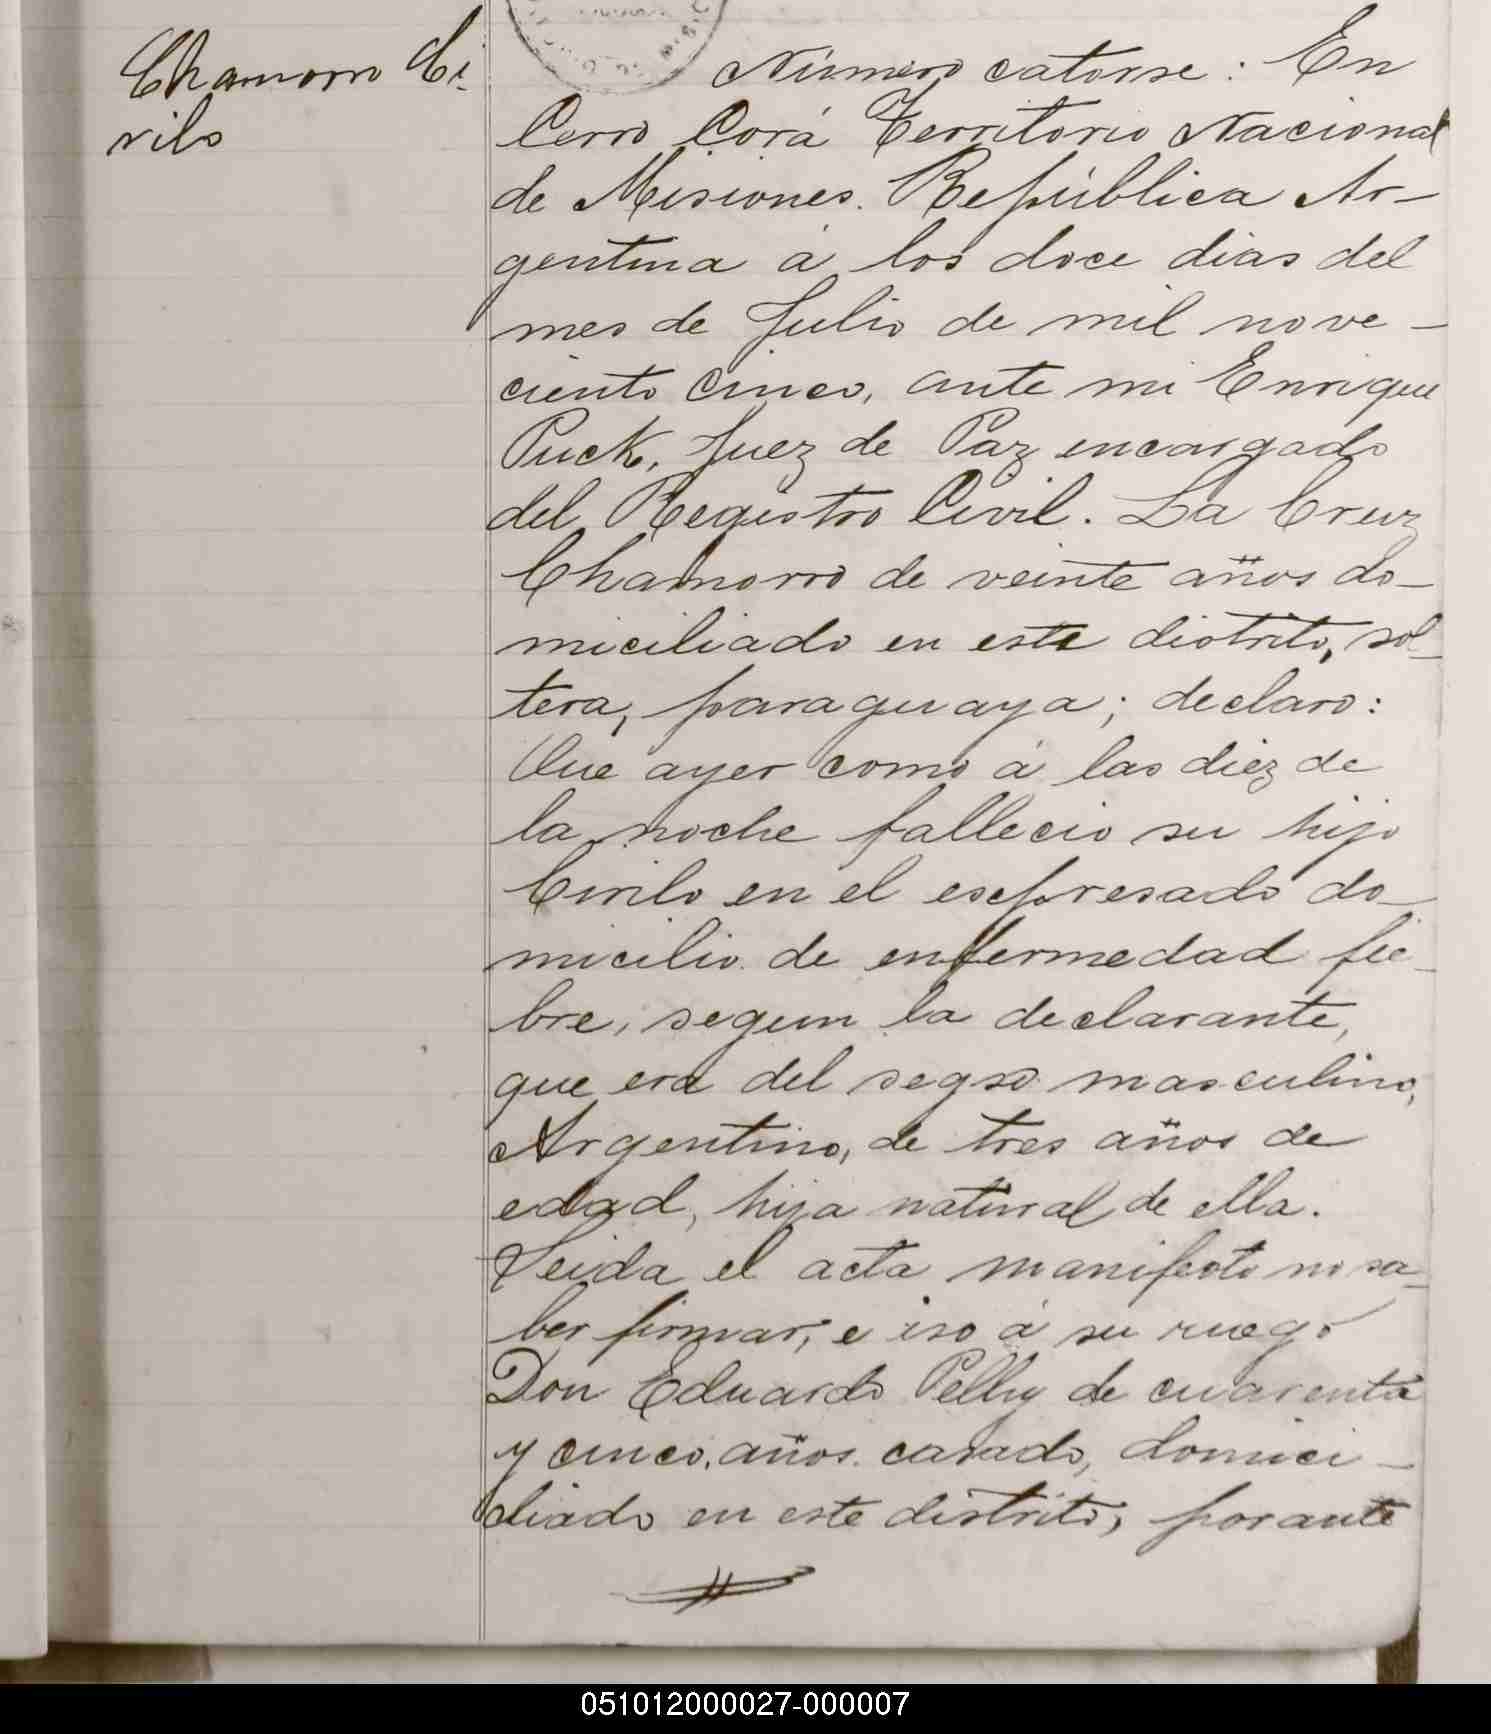 Chamorro Ci-
rilo
Número catorse: En
Cerro Corá Territorio Nacional
de Misiones. República Ar-
gentina á los doce dias del
mes de Julio de mil nove-
ciento cinco, ante mi Enrique
Puck, Juez de Paz encargado
del Registro Civil. La Cruz
Chamorro de veinte años do-
miciliado en este distrito, sol-
tera, paraguaya; declaro:
Que ayer como á las diez de
la noche fallecio su hijo
Cirilo en el espresado do-
micilio de enfermedad fie-
bre, segun la declarante,
que era del segso masculino,
Argentino, de tres años de
edad, hija natural de ella.
Leida el acta manifesto no sa-
ber firmar, e iso á su ruego
Don Eduardo Pelly de cuarenta
y cinco, años. casado, domici-
liado en este distrito, por ante
051012000027-000007